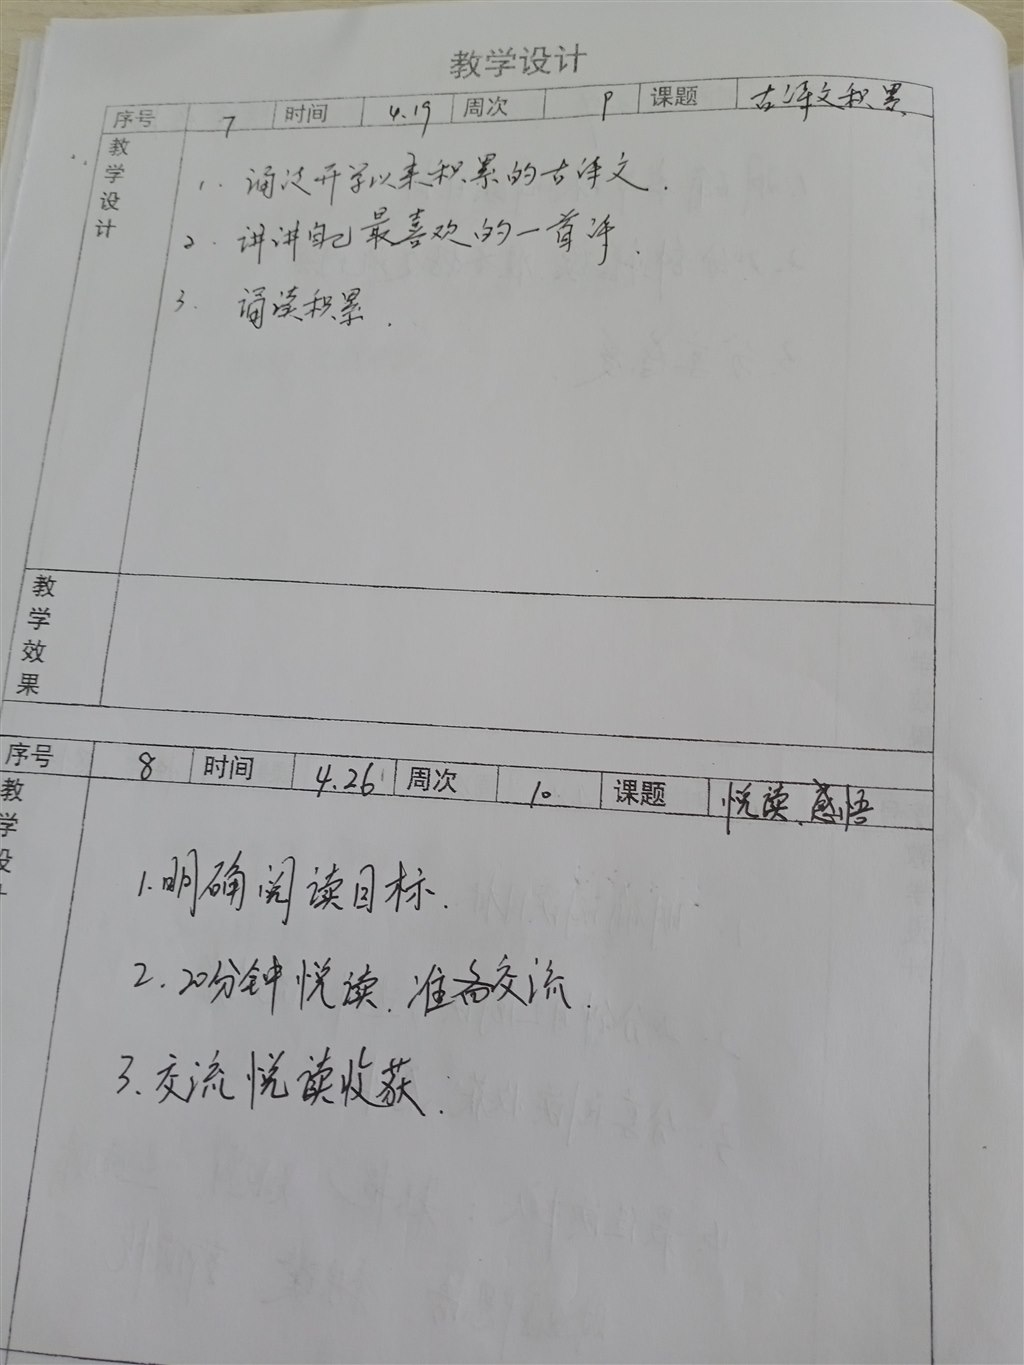 教学设计
序号 7 时间 4.19 周次 9 课题 古诗文积累
教学设计
1. 诵读开学以来积累的古诗文.
2. 讲讲自己最喜欢的一首诗.
3. 诵读积累.
教学效果
序号 8 时间 4.26 周次 10 课题 悦读、感悟
教学设计
1.明确阅读目标.
2.20分钟悦读.准备交流.
3.交流悦读收获.